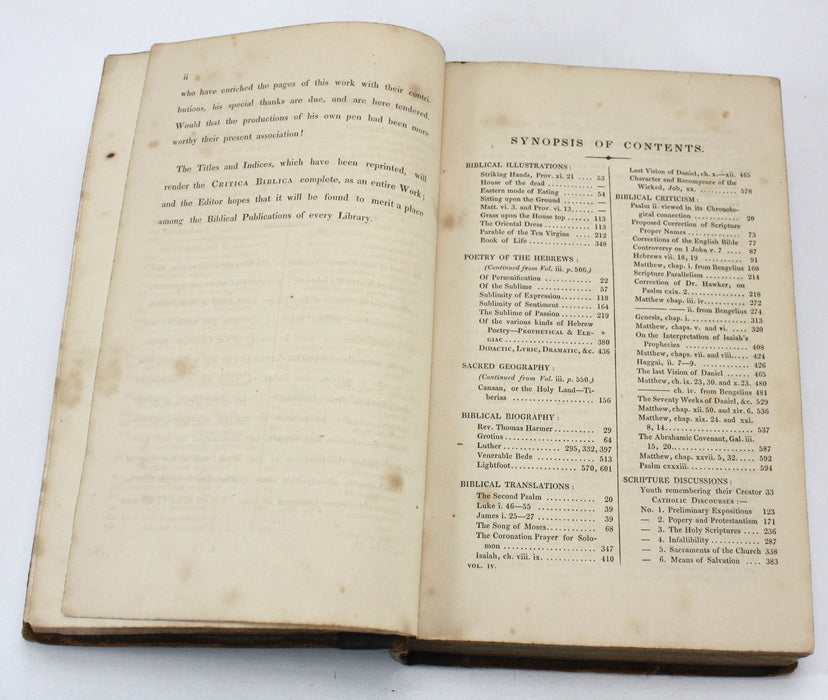 ii
who have enriched the pages of this work with their contri-
butions, his special thanks are due, and are here tendered.
Would that the productions of his own pen had been more
worthy their present association!
The Titles and Indices, which have been reprinted, will
render the CRITICA BIBLICA complete, as an entire Work;
and the Editor hopes that it will be found to merit a place
among the Biblical Publications of every Library.
SYNOPSIS OF CONTENTS.
BIBLICAL ILLUSTRATIONS:
Striking Hands, Prov. xi. 21 .... 53
House of the dead .............. —
Eastern mode of Eating ........ 54
Sitting upon the Ground ........ —
Matt. vi. 3. and Prov. vi 13...... —
Grass upon the House top ...... 113
The Oriental Dress ............ 113
Parable of the Ten Virgins .... 212
Book of Life .................. 348
POETRY OF THE HEBREWS:
(Continued from Vol. iii. p. 506.)
Of Personification .............. 22
Of the Sublime ................ 57
Sublimity of Expression........ 118
Sublimity of Sentiment ........ 164
The Sublime of Passion ........ 219
Of the various kinds of Hebrew
Poetry—PROPHETICAL & ELE-
GIAC ...................... 380
DIDACTIC, LYRIC, DRAMATIC, &c. 436
SACRED GEOGRAPHY:
(Continued from Vol. iii. p. 550.)
Canaan, or the Holy Land—Ti-
berias .................... 156
BIBLICAL BIOGRAPHY:
Rev. Thomas Harmer .......... 29
Grotius ........................ 64
Luther .............. 295, 332, 397
Venerable Bede .............. 513
Lightfoot.................. 570, 601
BIBLICAL TRANSLATIONS:
The Second Psalm ............ 20
Luke i. 46—55 ................ 39
James i. 25—27 ................ 39
The Song of Moses.............. 68
The Coronation Prayer for Solo-
mon ........................ 347
Isaiah, ch. viii. ix. ............ 410
VOL. IV.
Last Vision of Daniel, ch. x.—xii. 465
Character and Recompence of the
Wicked, Job, xx. ............ 578
BIBLICAL CRITICISM:
Psalm ii. viewed in its Chronolo-
gical connection .............. 20
Proposed Correction of Scripture
Proper Names ................ 73
Corrections of the English Bible 77
Controversy on 1 John v. 7 .... 87
Hebrews vii. 18, 19 ............ 91
Matthew, chap. i. from Bengelius 160
Scripture Parallelism .......... 214
Correction of Dr. Hawker, on
Psalm cxix. 2................ 218
Matthew chap. iii. iv............ 272
——— — ii. from Bengelius 274
Genesis, chap. i................ 313
Matthew, chaps. v. and vi. .... 320
On the Interpretation of Isaiah's
Prophecies .................. 408
Matthew, chaps. vii. and viii..... 424
Haggai, ii. 7—9. .............. 426
The last Vision of Daniel ...... 465
Matthew, ch. ix. 23, 30. and x.23. 480
——— ch. iv. from Bengelius 481
The Seventy Weeks of Daniel, &c. 529
Matthew, chap. xii. 50. and xiv. 6. 536
Matthew, chap. xix. 24. and xxi.
8, 14........................ 537
The Abrahamic Covenant, Gal. iii.
15, 20...................... 587
Matthew, chap. xxvii. 5, 32..... 592
Psalm cxxxiii. ................ 594
SCRIPTURE DISCUSSIONS:
Youth remembering their Creator 33
CATHOLIC DISCOURSES:—
No. 1. Preliminary Expositions 123
— 2. Popery and Protestantism 171
— 3. The Holy Scriptures .... 236
— 4. Infallibility ............ 287
— 5. Sacraments of the Church 338
— 6. Means of Salvation .... 383